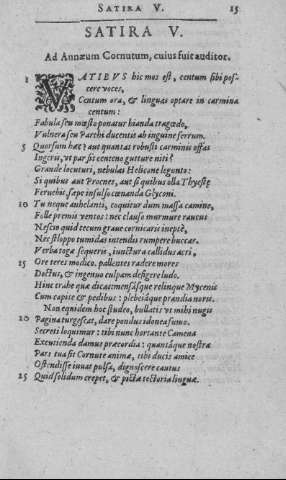 SATIRA V. 15
SATIRA V.
Ad Annæum Cornutum, cuius fuit auditor.
1 VATIBVS hic mos est, centum sibi poscere voces,
Centum ora, & linguas optare in carmina centum:
Fabula seu mœsto ponatur hianda tragœdo,
Vulnera seu Parthi ducentis ab inguine ferrum.
5 Quorsum hæc? aut quantas robusti carminis offas
Ingeris, vt par sit centeno gutture niti?
Grande locuturi, nebulas Helicone legunto:
Si quibus aut Procnes, aut si quibus olla Thyestę
Feruebit, sæpe insulso cœnanda Glyconi.
10 Tu neque anhelanti, coquitur dum massa camino,
Folle premis ventos: nec clauso murmure raucus
Nescio quid tecum graue cornicaris ineptè,
Nec stloppo tumidas intendis rumpere buccas.
Verba togæ sequeris, iunctura callidus acri,
15 Ore teres modico. pallentes radere mores
Doctus, & ingenuo culpam defigere ludo.
Hinc trahe quæ dicas: mensásque relinque Mycenis
Cum capite & pedibus: plebeiáque prandia noris.
Non equidem hoc studeo, bullatis vt mihi nugis
20 Pagina turgescat, dare pondus idonea fumo.
Secreti loquimur: tibi nunc hortante Camena
Excutienda damus præcordia: quantáque nostræ
Pars tua sit Cornute animæ, tibi dulcis amice
Ostendisse iuuat. pulsa, dignoscere cautus
25 Quid solidum crepet, & pictæ tectoria linguæ.